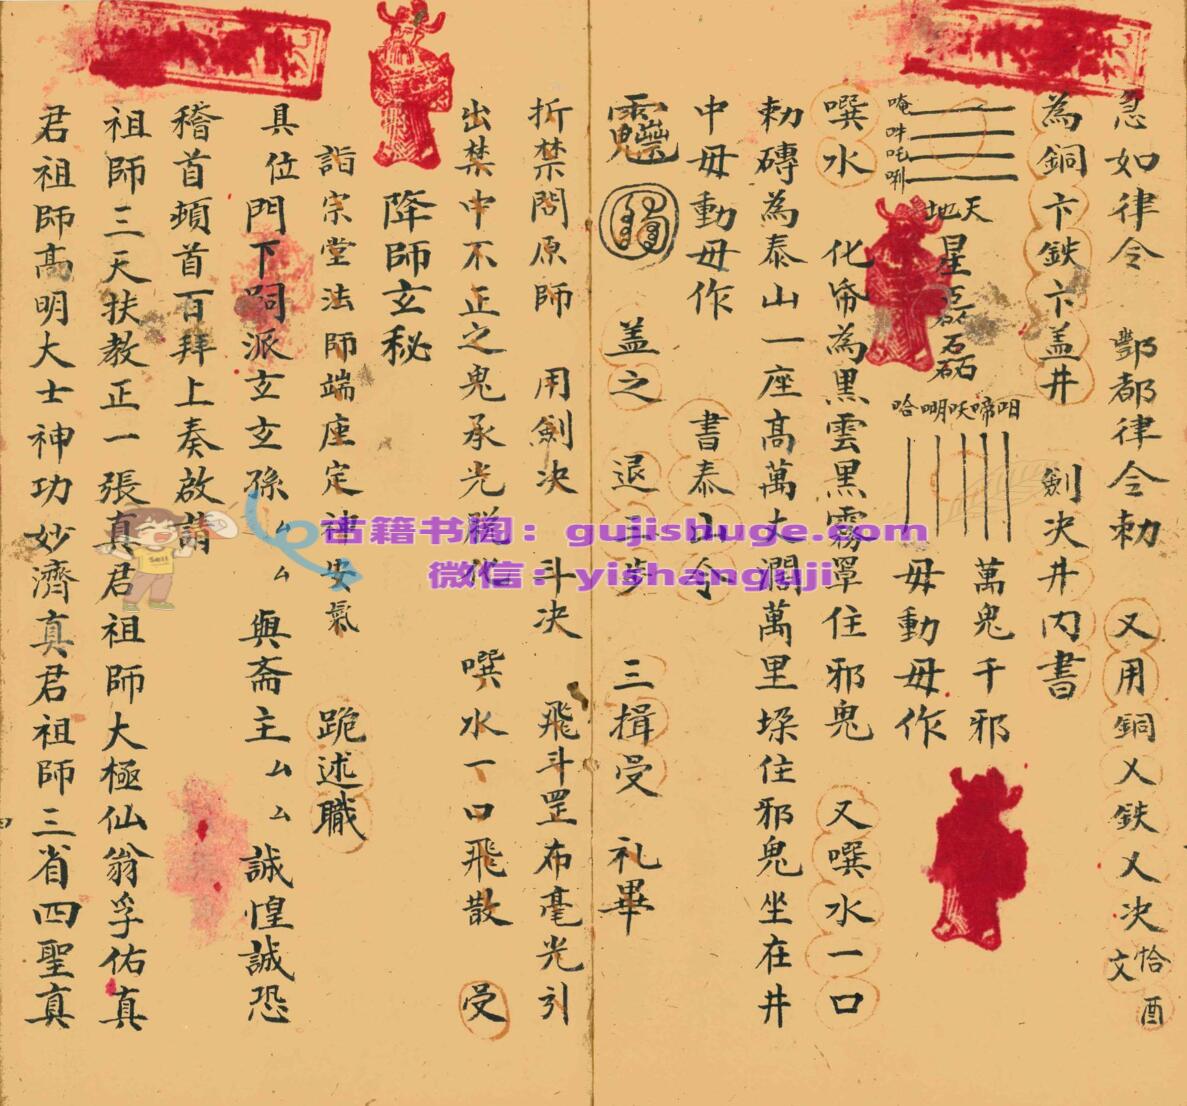 急如律令 酆都律令勅 又用銅乂鉄乂决 恰文酉
為銅卞鉄卞盖井 劍决井内書
唵吽吒唎
天地
星
磊
哈嗍
萬鬼千邪
毋動毋作
噀水 化帋為黑雲黑霧罩住邪鬼 又噀水一口
勅磚為泰山一座高萬丈濶萬里垜住邪鬼坐在井
中毋動毋作 書泰山令
盖之 退三步 三揖受 礼畢
折禁閤原師 用劍决 斗决 飛斗罡布毫光引
出禁中不正之鬼承光脱化 噀水一口飛散 受
降師玄秘
詣宗堂法師端座定神安氣 跪述職
具位門下嗣派玄玄孫厶厶 與斋主厶厶 誠惶誠恐
稽首頓首百拜上奏啟請
祖師三天扶教正一張真君祖師大極仙翁孚佑真
君祖師高明大士神功妙濟真君祖師三省四聖真
古籍书阁：gujishuge.com
微信：yishanguji